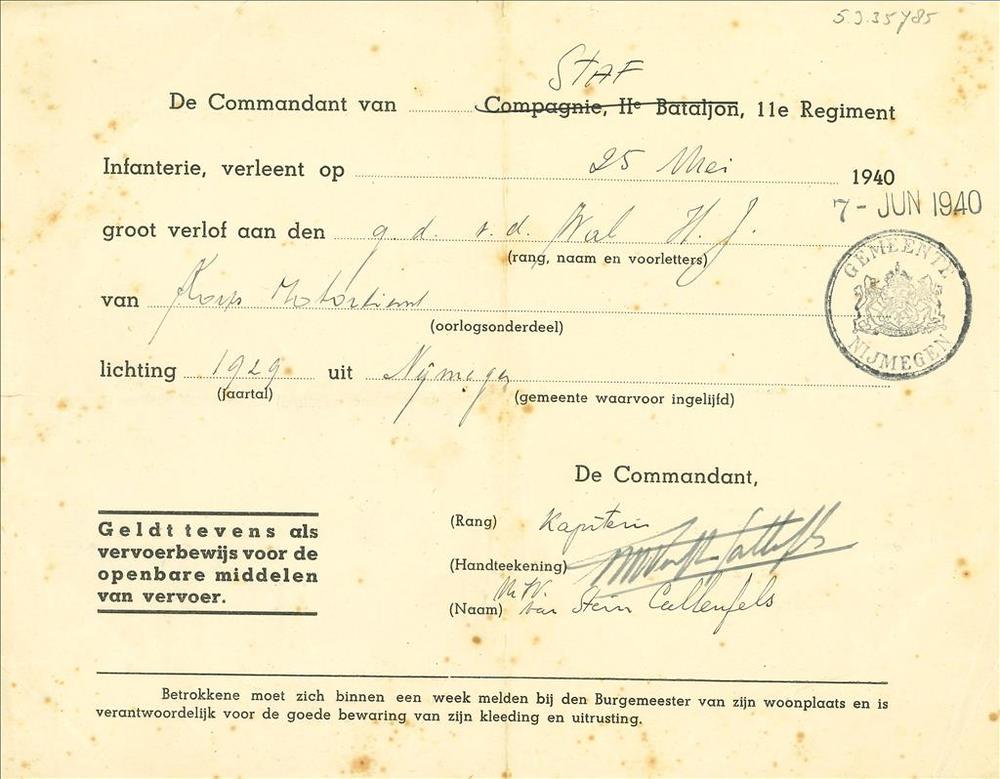 5.J.35785
STAF
De Commandant van Compagnie, IIe Bataljon, 11e Regiment
Infanterie, verleent op 25 Mei 1940
7 - JUN 1940
groot verlof aan den g. d. v. d. Wal H. J.
(rang, naam en voorletters)
GEMEENTE NIJMEGEN
van Korps Motordienst
(oorlogsonderdeel)
lichting 1929 uit Nijmegen
(jaartal) (gemeente waarvoor ingelijfd)
De Commandant,
(Rang) Kapitein
(Handteekening)
(Naam) van Stein Callenfels
Geldt tevens als
vervoerbewijs voor de
openbare middelen
van vervoer.
Betrokkene moet zich binnen een week melden bij den Burgemeester van zijn woonplaats en is
verantwoordelijk voor de goede bewaring van zijn kleeding en uitrusting.